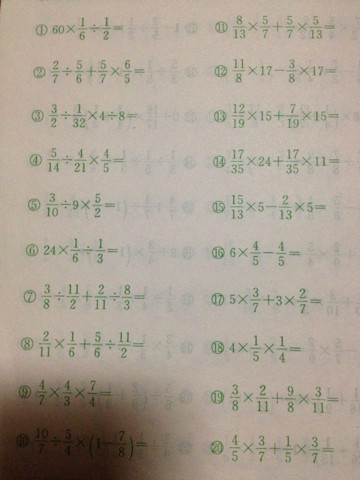 ① 60×1/6÷1/2=
② 2/7÷5/6+5/7×6/5=
③ 3/2÷1/32×4÷8=
④ 5/14÷4/21×4/5=
⑤ 3/10÷9×5/2=
⑥ 24×1/6÷1/3=
⑦ 3/8÷11/2+2/11÷8/3=
⑧ 2/11×1/6+5/6÷11/2=
⑨ 4/7×4/3×7/4=
⑩ 10/7÷5/4×(1-7/8)=
⑪ 8/13×5/7+5/7×5/13=
⑫ 11/8×17-3/8×17=
⑬ 12/19×15+7/19×15=
⑭ 17/35×24+17/35×11=
⑮ 15/13×5-2/13×5=
⑯ 6×4/5-4/5=
⑰ 5×3/7+3×2/7=
⑱ 4×1/5×1/4=
⑲ 3/8×2/11+9/8×3/11=
⑳ 4/5×3/7+1/5×3/7=